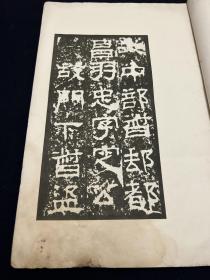 故中部督郵都
昌羽忠字定公
故門下督盜